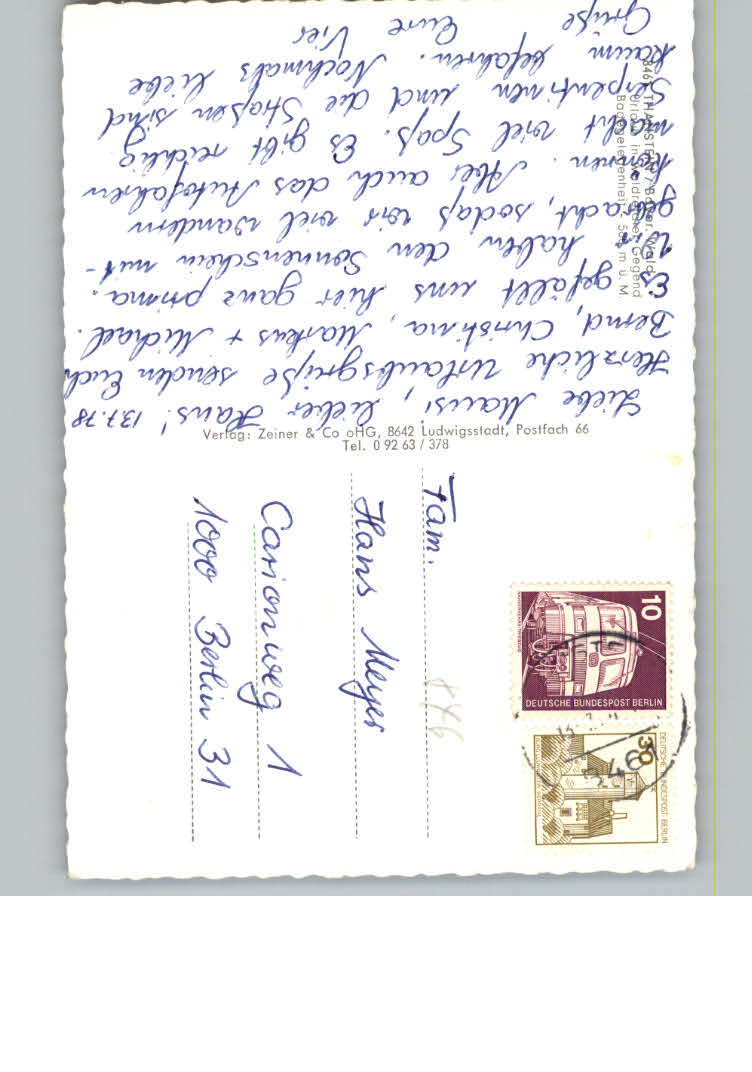 Liebe Mausi, lieber Hans! 13.7.78
Herzliche Urlaubsgrüße senden Euch
Bernd, Christina, Markus + Michael.
Es gefällt uns hier ganz prima.
Wir haben den Sonnenschein mit-
gebracht, sodaß wir viel wandern
können. Aber auch das Autofahren
macht viel Spaß. Es gibt reichlig
Serpentinen und die Straßen sind
kaum befahren. Nochmals liebe
Grüße Eure Vier
8461 THANSTEIN / Bayer. Wald
Urlaub in waldreicher Gegend
Badegelegenheit, m ü. M.
Verlag: Zeiner & Co oHG, 8642 Ludwigsstadt, Postfach 66
Tel. 0 92 63 / 378
Fam.
Hans Meyer
Carionweg 1
1000 Berlin 31
10
DEUTSCHE BUNDESPOST BERLIN
30
DEUTSCHE BUNDESPOST BERLIN
8461